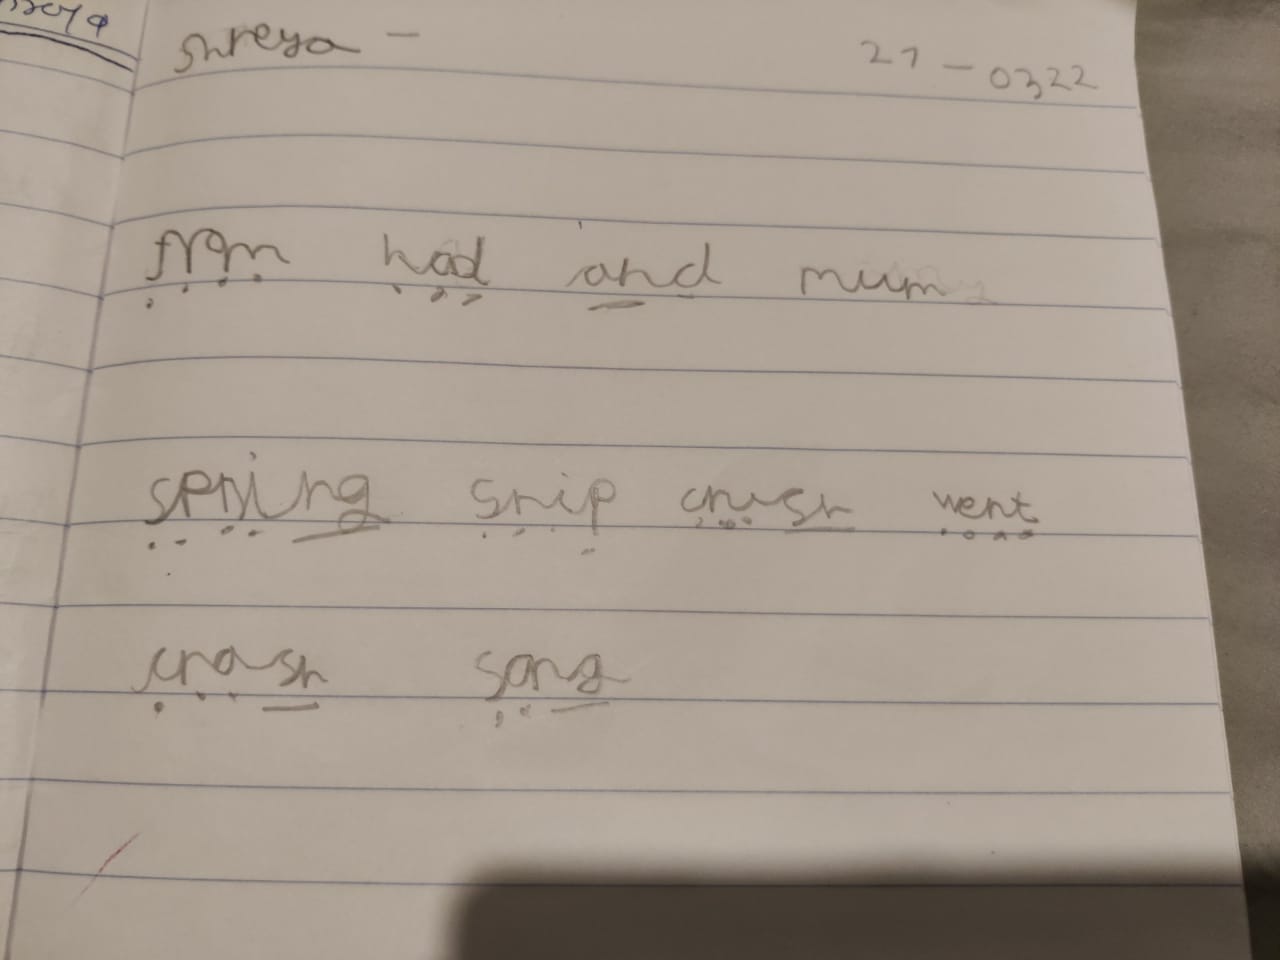 Shreya - 27-0322
from had and mum
spring snip crush went
crash song